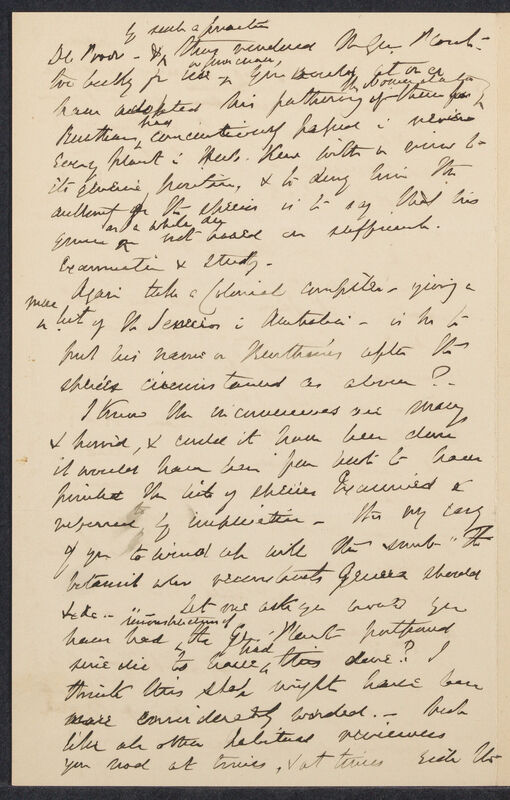 by such a practice
De Novo — & thus rendered the Gen. Plant.
in this manner,
have adopted his fathering of them for
Bentham had conscientiously passed in review
every plant in Herb. Kew with a view to
its generic position, & to deny him the
author of the species is to say that his
genera as a whole are not based on sufficient
examination & study —
Again take a Colonial compiler — giving a
mere list of the Senecios in Australia — is he to
put his name or Bentham's after the
species circumstanced as above? —
I know the inconveniences are many
& horrid, & could it have been done
it would have been far best to have
printed the lists of species examined &
referred to by implication — It is very easy
of you to wind up with the "The
botanist who reconstructs Genera should
&c &c — Let me ask you would you
have had the Gen. Plant. postponed
sine die to have had this done? I
think this might have been
more considerately worded. — but
like all other habitual reviewers
you nod at times, & at times